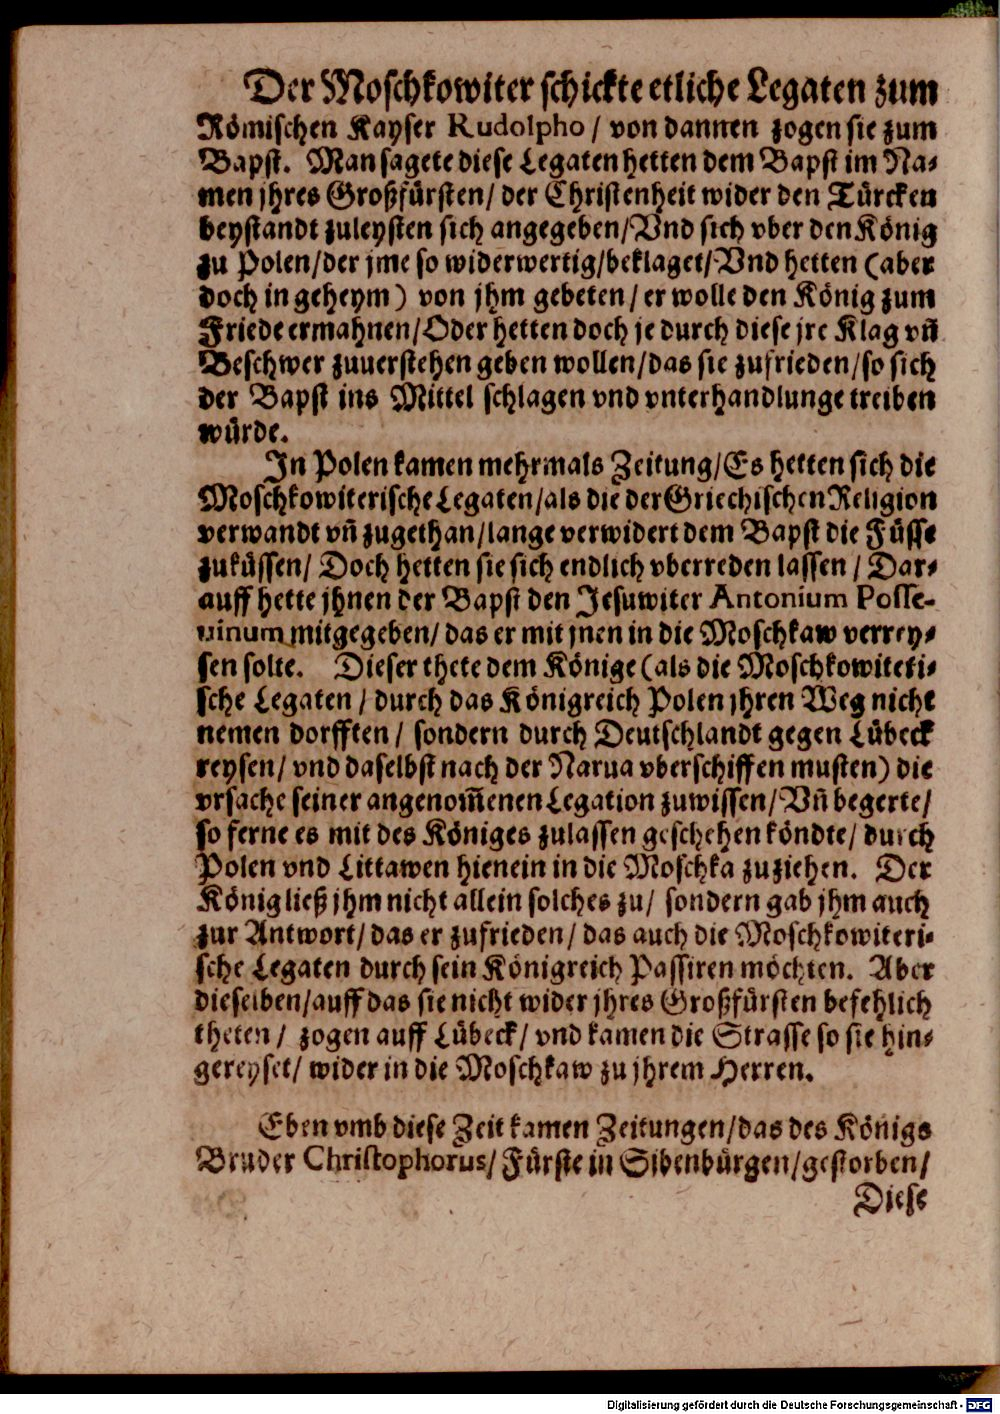 Der Moschkowiter schickte etliche Legaten zum
Römischen Kayser Rudolpho / von dannen zogen sie zum
Bapst. Man sagete diese Legaten hetten dem Bapst im Na-
men jhres Großfürsten / der Christenheit wider den Türcken
beystandt zuleysten sich angegeben / Vnd sich vber den König
zu Polen / der jme so widerwertig / beklaget / Vnd hetten (aber
doch in geheym) von jhm gebeten / er wolle den König zum
Friede ermahnen / Oder hetten doch je durch diese jre Klag vñ
Beschwer zuuerstehen geben wollen / das sie zufrieden / so sich
der Bapst ins Mittel schlagen vnd vnterhandlunge treiben
würde.
In Polen kamen mehrmals Zeitung / Es hetten sich die
Moschkowiterische Legaten / als die der Griechischen Religion
verwandt vñ zugethan / lange verwidert dem Bapst die Füsse
zuküssen / Doch hetten sie sich endlich vberreden lassen / Dar-
auff hette jhnen der Bapst den Jesuwiter Antonium Posse-
uinum mitgegeben / das er mit jnen in die Moschkaw verrey-
sen solte. Dieser thete dem Könige (als die Moschkowiteri-
sche Legaten / durch das Königreich Polen jhren Weg nicht
nemen dorfften / sondern durch Deutschlandt gegen Lübeck
reysen / vnd daselbst nach der Narua vberschiffen musten) die
vrsache seiner angenom̃enen Legation zuwissen / Vñ begerte /
so ferne es mit des Königes zulassen geschehen köndte / durch
Polen vnd Littawen hienein in die Moschka zuziehen. Der
König ließ jhm nicht allein solches zu / sondern gab jhm auch
zur Antwort / das er zufrieden / das auch die Moschkowiteri-
sche Legaten durch sein Königreich Passiren möchten. Aber
dieselben / auff das sie nicht wider jhres Großfürsten befehlich
theten / zogen auff Lübeck / vnd kamen die Strasse so sie hin-
gereyset / wider in die Moschkaw zu jhrem Herren.
Eben vmb diese Zeit kamen Zeitungen / das des Königs
Bruder Christophorus / Fürste in Sibenbürgen / gestorben /
Diese
Digitalisierung gefördert durch die Deutsche Forschungsgemeinschaft - DFG